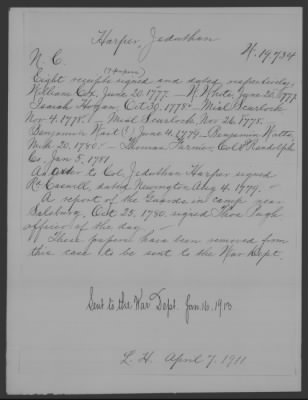 Harper, Jeduthan
W. 19734
N. C.
(7 papers)
Eight receipts signed and dated respectively,
William Cox, June 20. 1777. — W. White, June 20. 1777
Isaiah Hogan, Oct 30. 1778 — Mial Scurlock
Nov 4. 1778. — Mial Scurlock, Nov 26. 1778.
Benjamin (?) June 4. 1779 — Benjamin
20. 1780. — Thomas Col. Randolph
Co. Jan 5, 1781.
A to Col. Jeduthan Harper signed
Rd. Caswell, dated Newington Aug 4. 1779. —
A report of the Guards in camp near
Salsbury, Oct 25, 1780. signed Thos. Pugh
officer of the day —
These papers have been removed from
this case to be sent to the War Dept.
Sent to the War Dept. Jan. 16. 1913
L. H. April 7. 1911